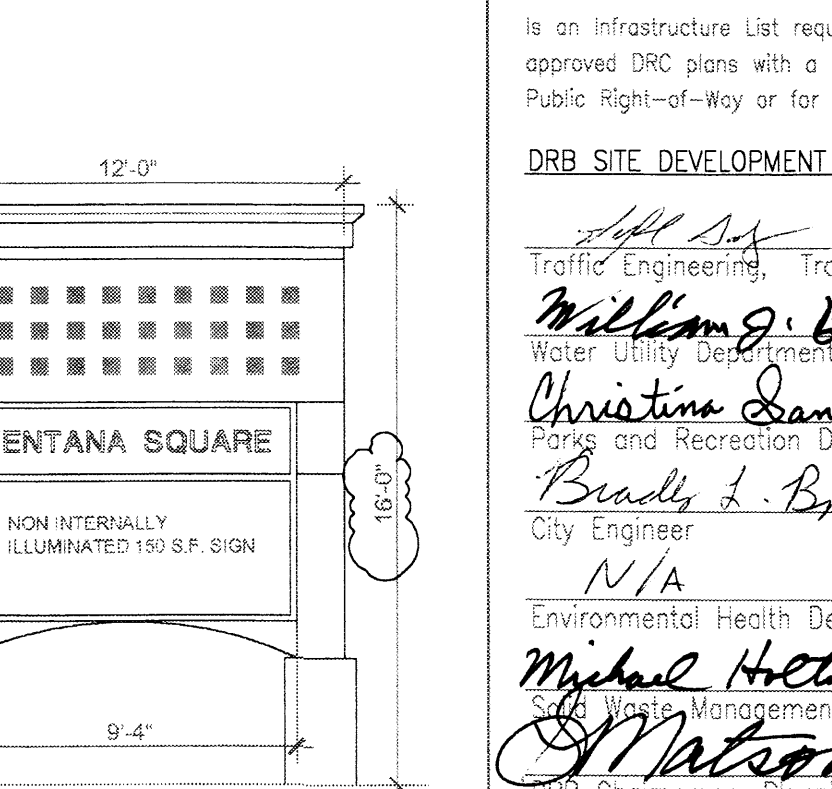 12'-0"
ENTANA SQUARE
16'-0"
NON INTERNALLY
ILLUMINATED 150 S.F. SIGN
9'-4"
is an Infrastructure List requ
approved DRC plans with a
Public Right-of-Way or for
DRB SITE DEVELOPMENT
Traffic Engineering, Tra
William J.
Water Utility Department
Christina San
Parks and Recreation D
Bradley L. B
City Engineer
N/A
Environmental Health De
Michael Holt
Solid Waste Managemen
Matson